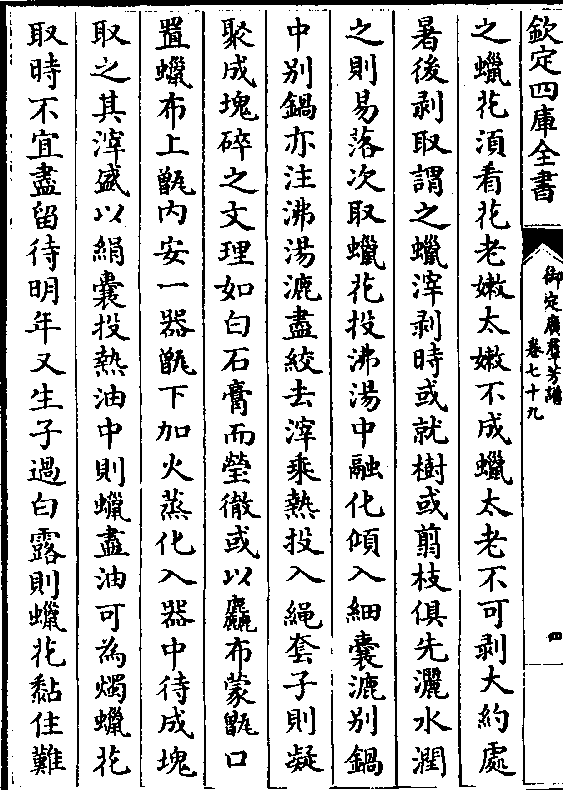 欽定四庫全書
御定廣羣芳譜
卷七十九
四
之蠟花湏看花老嫩太嫩不成蠟太老不可剥大約處
暑後剥取謂之蠟滓剥時或就樹或剪枝俱先灑水潤
之則易落次取蠟花投沸湯中融化傾入細囊漉别鍋
中别鍋亦注沸湯漉盡絞去滓乘熱投入繩套子則凝
聚成塊碎之文理如白石膏而瑩徹或以麤布蒙甑口
置蠟布上甑内安一器甑下加火蒸化入器中待成塊
取之其滓盛以絹囊投熱油中則蠟盡油可為燭蠟花
取時不宜盡留待明年又生子過白露則蠟花黏住難